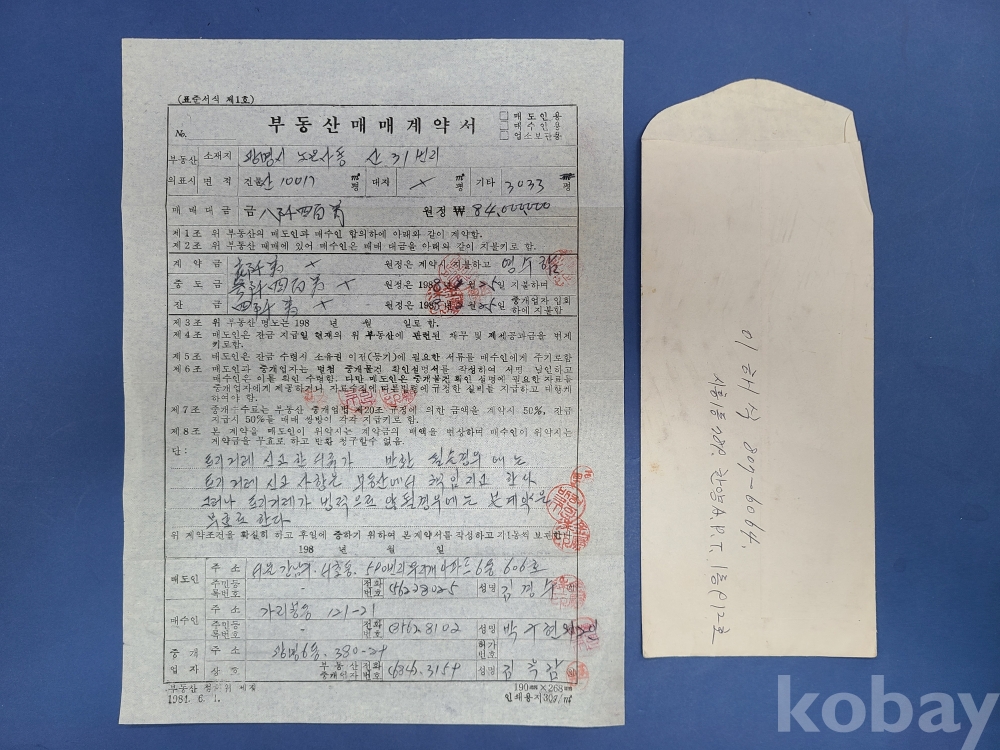 (표준서식 제1호)
부동산매매계약서
□ 매도인용
□ 매수인용
□ 업소보관용
No.
부동산 소재지 광명시 노온사동 산 31번지
의표시 면적 건물 산 10017 ㎡ 평 대지 × ㎡ 평 기타 3033 평
매매대금 금 八千四百万 원정 ₩ 84,000,000
제1조 위 부동산의 매도인과 매수인 합의하에 아래와 같이 계약함.
제2조 위 부동산 매매에 있어 매수인은 매매 대금을 아래와 같이 지불키로 함.
계약금 원정은 계약시 지불하고 영수함
중도금 四百万 × 원정은 198 년 월 25일 지불하며
잔금 × 원정은 198 년 월 25일 중개업자 입회하에 지불함
제3조 위 부동산 명도는 198 년 월 일로 함.
제4조 매도인은 잔금 지급일 현재의 위 부동산에 관련된 채무 및 제세공과금을 변제
키로함.
제5조 매도인은 잔금 수령시 소유권 이전(등기)에 필요한 서류를 매수인에게 주기로함
제6조 매도인과 중개업자는 별첨 중개물건 확인설명서를 작성하여 서명 날인하고
매수인은 이를 확인 수령함. 다만 매도인은 중개물건 확인 설명에 필요한 자료를
중개업자에게 제공하거나 자료수집에 따른 법령에 규정한 실비를 지급하고 대행케
하여야 함.
제7조 중개수수료는 부동산 중개업법 제20조 규정에 의한 금액을 계약시 50%, 잔금
지급시 50%를 매매 쌍방이 각자 지급키로 함.
제8조 본 계약을 매도인이 위약시는 계약금의 배액을 변상하며 매수인이 위약시는
계약금을 무효로 하고 반환 청구할수 없음.
단:
토지거래 신고한 서류가 반환 될경우에는
토지거래 신고 사항은 부동산에서 책임지고 한다
그러나 토지거래가 법적으로 안될경우에는 본계약은
무효로 한다
위 계약조건을 확실히 하고 후일에 증하기 위하여 본계약서를 작성하고 각1통씩 보관한다.
198 년 월 일
매도인 주소 서울 강남구 서초동 아파트 6동 606호
주민등록번호 - 전화번호 성명 김경수
매수인 주소 가리봉동 121-21
주민등록번호 - 전화번호 8562-8102 성명 박
중개업자 주소 광명6동 380-29 허가번호
상호 부동산중개인가 전화번호 성명 김
부동산 제정
1984. 6. 1.
190㎜×268㎜
인쇄용지30g/㎡
이해식 809-6064.
한양A.P.T. 1동 912호
kobay